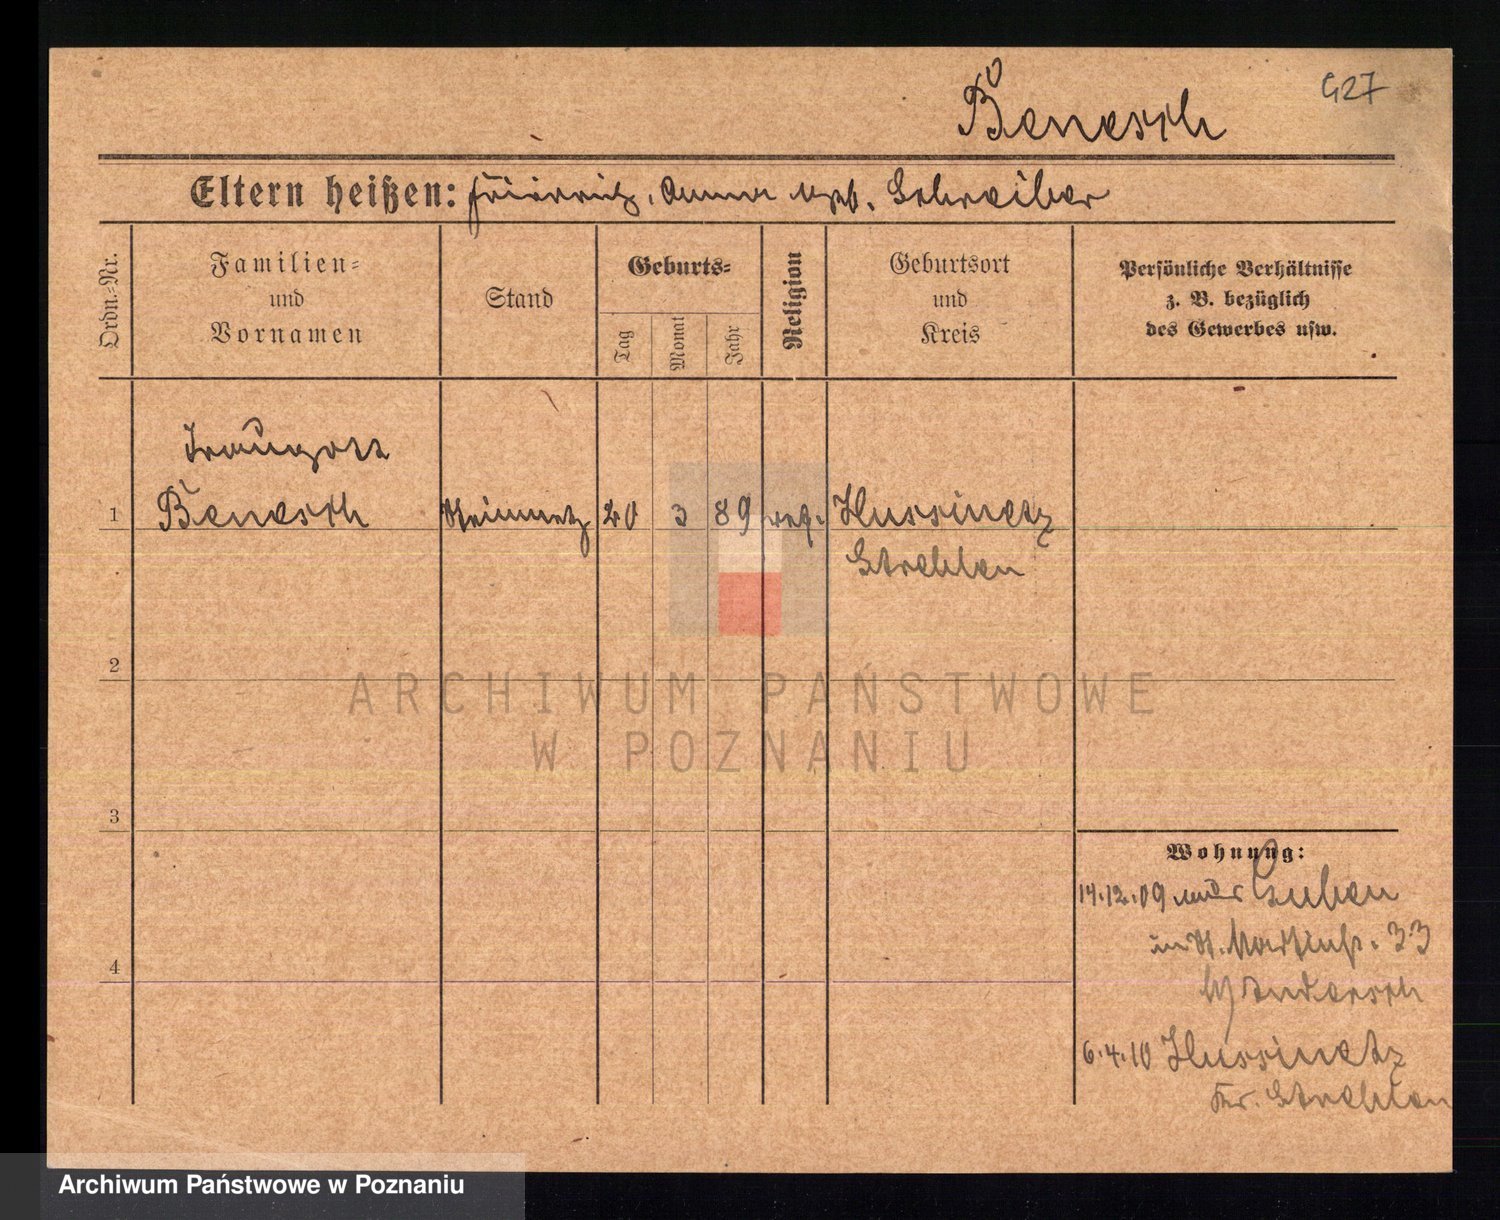 427
Benesch
Eltern heißen: Friedrich, Anna geb. Schreiber
Ordn.-Nr.
Familien-
und
Vornamen
Stand
Geburts-
Tag
Monat
Jahr
Religion
Geburtsort
und
Kreis
Persönliche Verhältnisse
z. B. bezüglich
des Gewerbes usw.
Traugott
1 Benesch Steinmetz 20 3 89 ref. Hussinetz
Strehlen
2
ARCHIWUM PAŃSTWOWE
W POZNANIU
3
Wohnung:
14.12.09 Guben
in St. Martinstr. 33
4
b/ Andersch
6.4.10 Hussinetz
Kr. Strehlen
Archiwum Państwowe w Poznaniu